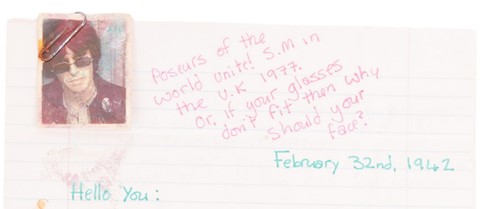 Poseurs of the
world unite! S.M in
the U.K 1977.
Or, if your glasses
don't fit then why
should your
face?
February 32nd, 1942
Hello You: